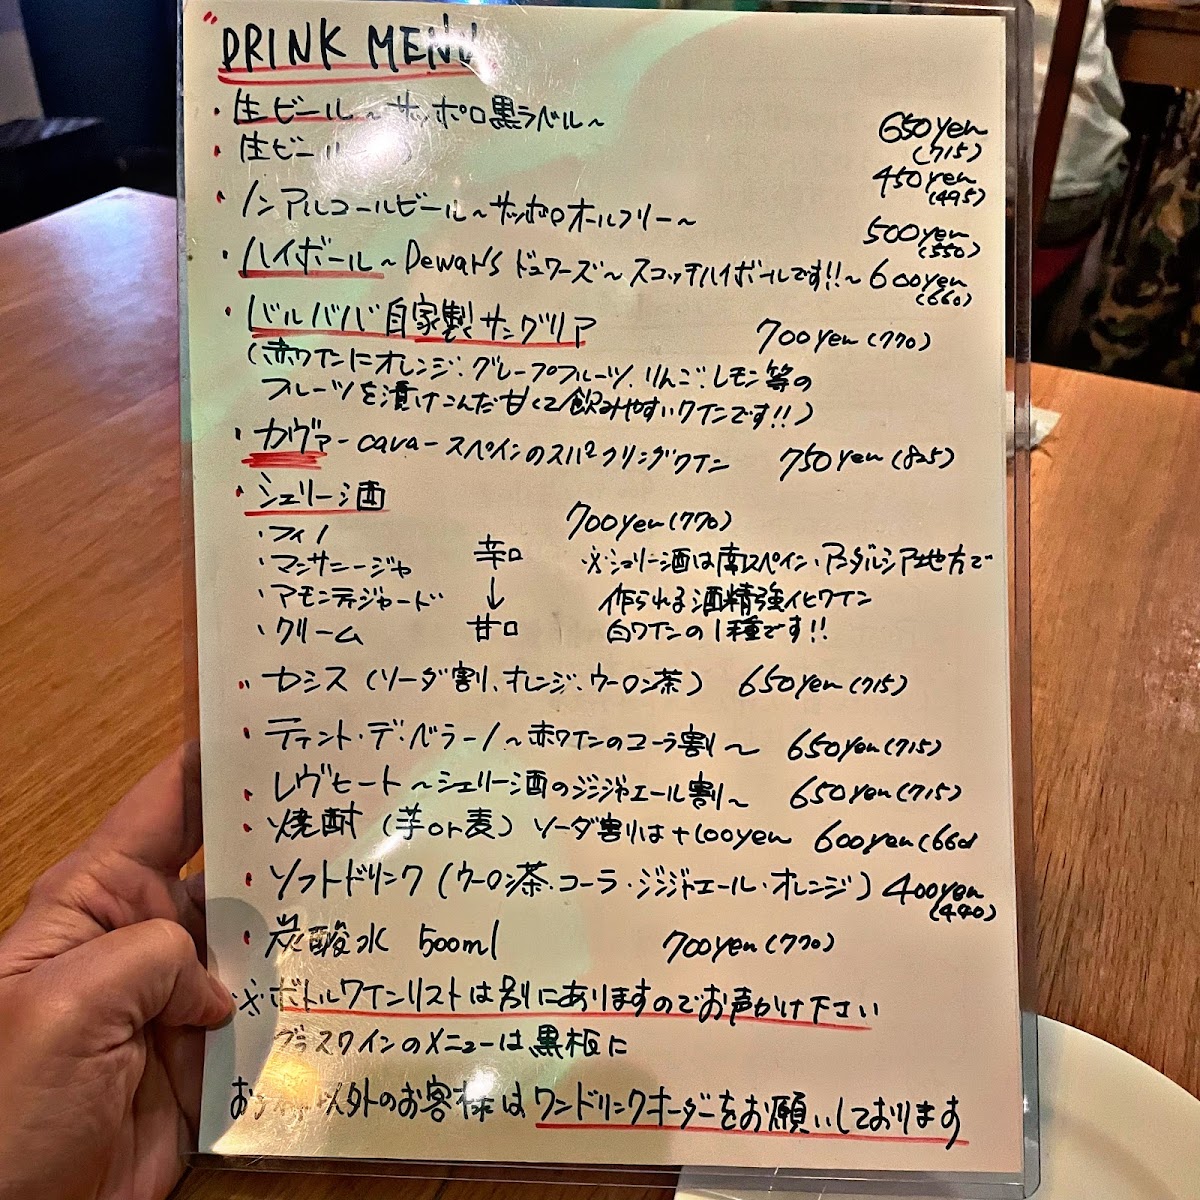 "DRINK MENU"
・生ビール～サッポロ黒ラベル～ 650yen
(715)
・生ビール 450yen
(495)
・ノンアルコールビール～サッポロオールフリー～ 500yen
(550)
・ハイボール～Dewar's デュワーズ～スコッチハイボールです!!～ 600yen
(660)
・バルババ自家製サングリア 700yen(770)
(赤ワインにオレンジ、グレープフルーツ、りんご、レモン等の
フルーツを漬けこんだ甘くて飲みやすいワインです!!)
・カヴァーcavaースペインのスパークリングワイン 750yen(825)
・シェリー酒 700yen(770)
・フィノ
・マンサニージャ 辛口 ※シェリー酒は南スペイン・アンダルシア地方で
・アモンティジャード ↓ 作られる酒精強化ワイン
・クリーム 甘口 白ワインの1種です!!
・カシス(ソーダ割、オレンジ、ウーロン茶) 650yen(715)
・ティント・デ・ベラーノ～赤ワインのコーラ割～ 650yen(715)
・レヴヒート～シェリー酒のジンジャエール割～ 650yen(715)
・焼酎(芋or麦) ソーダ割は+100yen 600yen(660
・ソフトドリンク(ウーロン茶・コーラ・ジンジャエール・オレンジ) 400yen
(440)
・炭酸水 500ml 700yen(770)
※ボトルワインリストは別にありますのでお声かけ下さい
グラスワインのメニューは黒板に
以外のお客様はワンドリンクオーダーをお願いしております